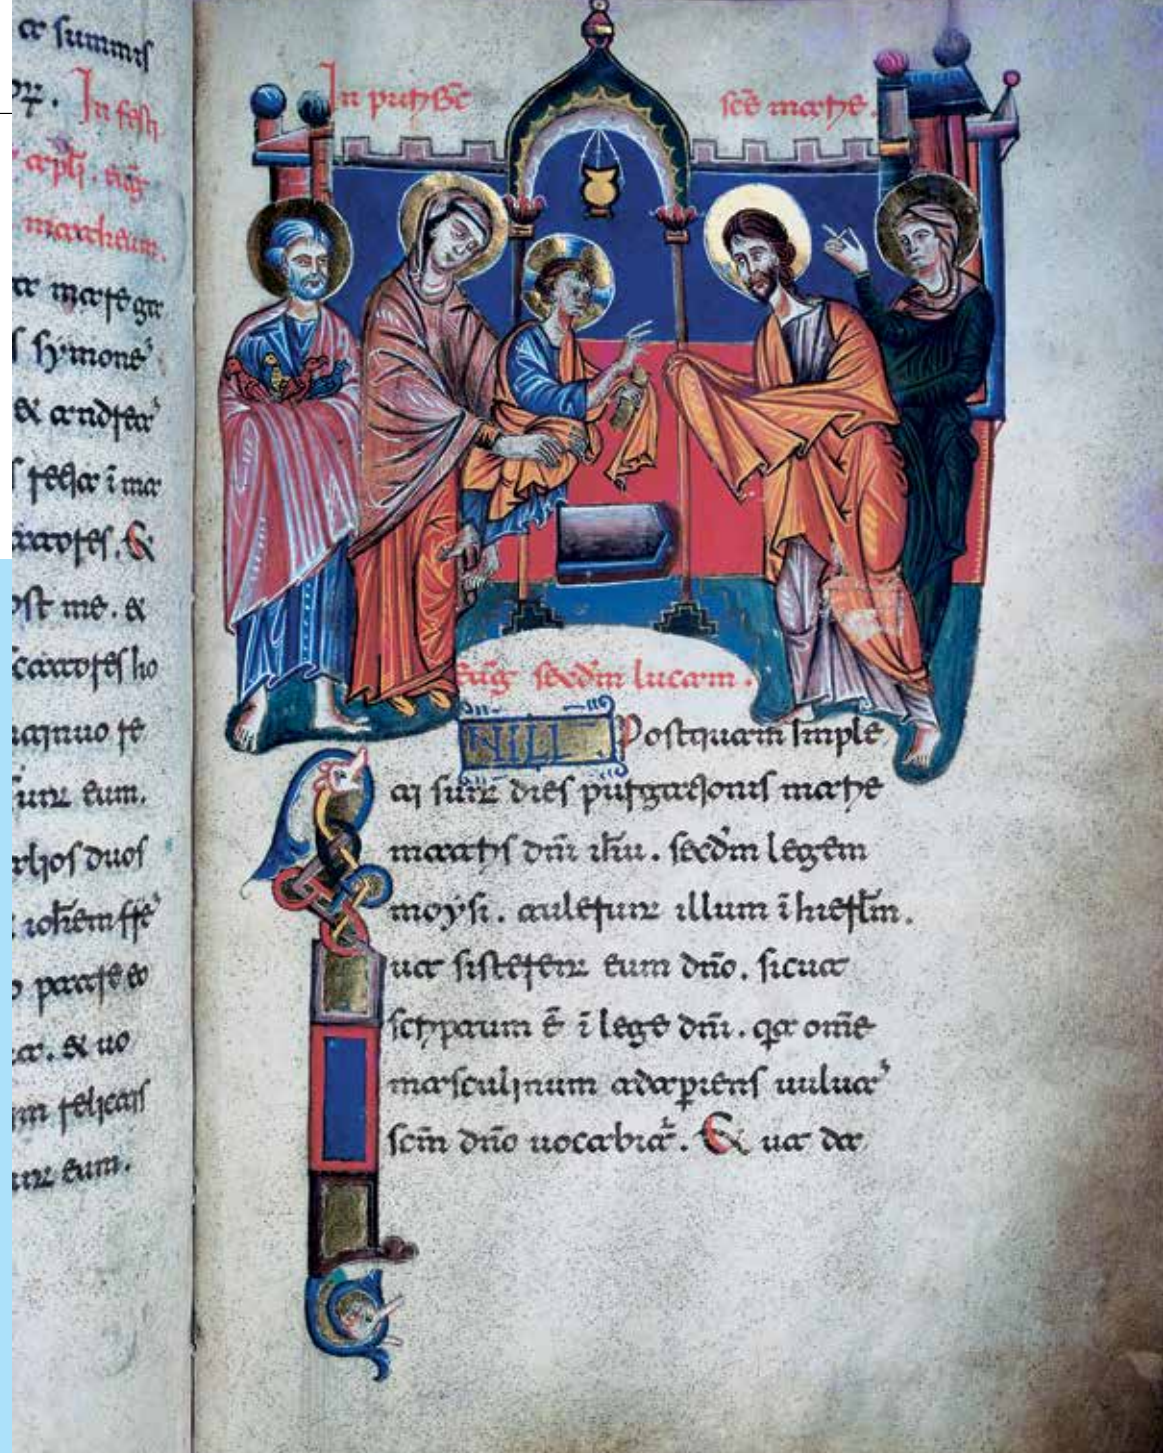 a summis
In festi
apli. eug
mattheum.
mare ga
symone
& andrea
retia ī ma
catores. &
ost me. &
scatores ho
tinuo re
unt eum.
alios duos
iohem frē
patre eo
& uo
relictis
unt eum.
In purifc̄ scē marie.
eūg secdm lucam.
INILL Postquam imple
ti sunt dies purgationis marie
matris dnī ihū. secdm legem
moysi. tulerunt illum ī hierlm.
ut sisterent eum dnō. sicut
scriptum ē ī lege dnī. qa omē
masculinum adap̄riens uulua
scm̄ dnō uocabit. & ut da